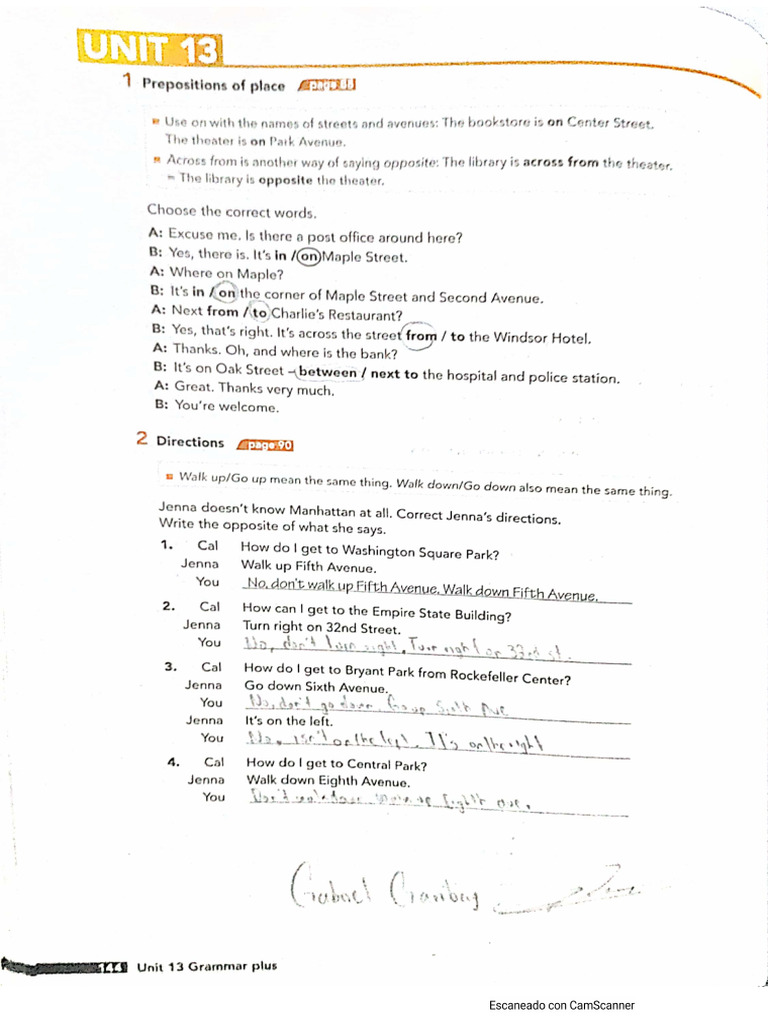 UNIT 13
1 Prepositions of place page 88
Use on with the names of streets and avenues: The bookstore is on Center Street.
The theater is on Park Avenue.
Across from is another way of saying opposite: The library is across from the theater.
= The library is opposite the theater.
Choose the correct words.
A: Excuse me. Is there a post office around here?
B: Yes, there is. It's in / on Maple Street.
A: Where on Maple?
B: It's in / on the corner of Maple Street and Second Avenue.
A: Next from / to Charlie's Restaurant?
B: Yes, that's right. It's across the street from / to the Windsor Hotel.
A: Thanks. Oh, and where is the bank?
B: It's on Oak Street – between / next to the hospital and police station.
A: Great. Thanks very much.
B: You're welcome.
2 Directions page 90
Walk up/Go up mean the same thing. Walk down/Go down also mean the same thing.
Jenna doesn't know Manhattan at all. Correct Jenna's directions.
Write the opposite of what she says.
1. Cal How do I get to Washington Square Park?
Jenna Walk up Fifth Avenue.
You No, don't walk up Fifth Avenue. Walk down Fifth Avenue.
2. Cal How can I get to the Empire State Building?
Jenna Turn right on 32nd Street.
You No, don't turn right. Turn right on 32nd st.
3. Cal How do I get to Bryant Park from Rockefeller Center?
Jenna Go down Sixth Avenue.
You No, don't go down. Go up Sixth Ave
Jenna It's on the left.
You No, isn't on the left. It's on the right
4. Cal How do I get to Central Park?
Jenna Walk down Eighth Avenue.
You Don't walk down. Walk up Eighth Ave.
144 Unit 13 Grammar plus
Escaneado con CamScanner